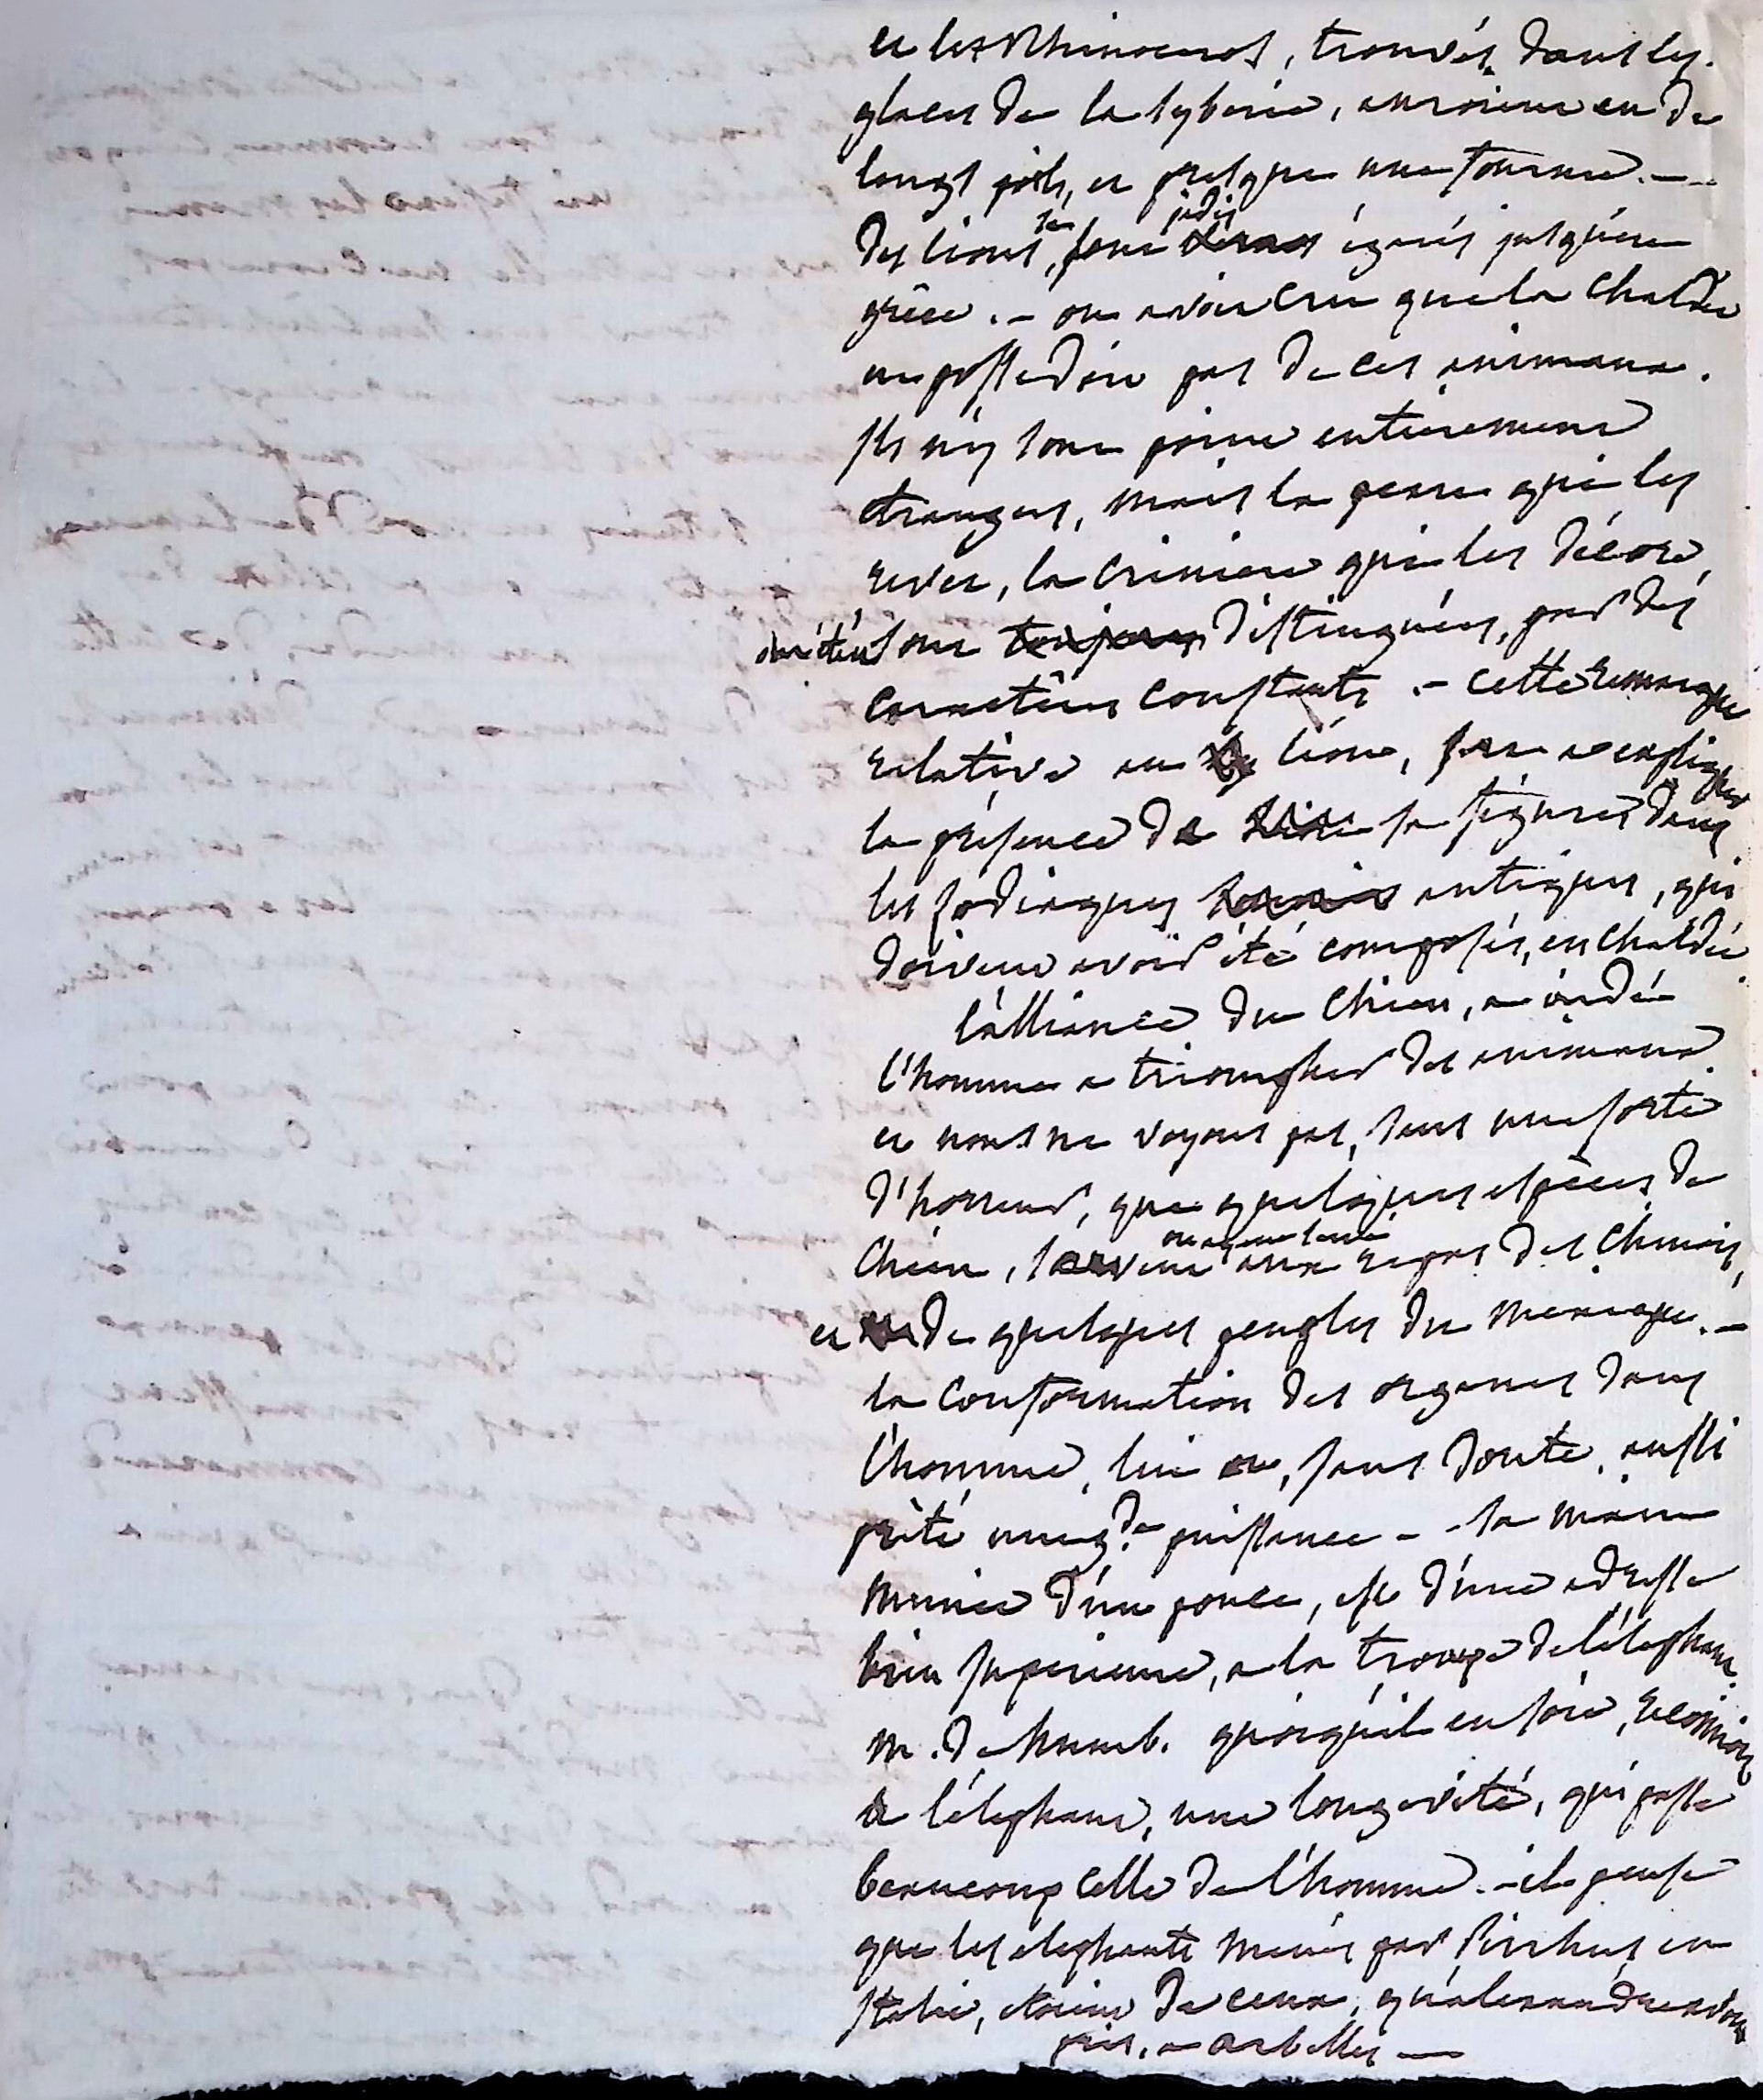 et les Rhinoceros, trouvés dans les
glaces de la Syberie, auroient eu de
longs poils, et presque une fourrure. —
des lions, se sont jadis égarés jusqu'en
grèce. — on avoit cru que la Chaldée
ne possedoit pas de ces animaux.
ils n'y sont point entierement
étrangers, mais la peau qui les
revet, la criniere qui les décore,
ont été sont toujours distinguées, par des
caractères constants. — cette remarque
relative au lion, sert a expliquer
la présence de sa figure dans
les zodiaques antiques, qui
doivent avoir été composés, en Chaldée
l'alliance du Chien, a aidé
l'homme a triompher des animaux.
et nous ne voyons pas, sans une sorte
d'horreur, que quelques espèces de
Chien, servent aux repas des Chinois,
et de quelques peuples du Mexique. —
la conformation des organes dans
l'homme, lui a, sans doute, aussi
prêté une gde puissance — sa main
munie d'un pouce, est d'une adresse
bien superieure, a la trompe de l'éléphant.
m. de humb. quoiqu'il en soit, reconnoit
a l'éléphant, une longévité, qui passe
beaucoup celle de l'homme. — il pense
que les elephants menés par Pirrhus, en
Italie, étoient de ceux, qu'alexandre avoit
pris, a arbelles —